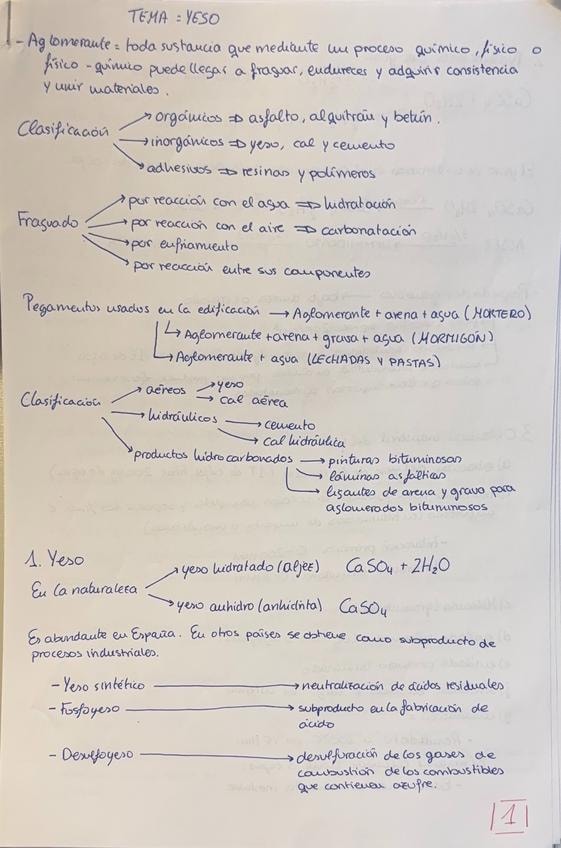 TEMA = YESO
- Aglomerante = toda sustancia que mediante un proceso químico, físico o
físico - químico puede llegar a fraguar, endureces y adquirir consistencia
y unir materiales.
Clasificación → orgánicos ⇒ asfalto, alquitrán y betún.
→ inorgánicos ⇒ yeso, cal y cemento
→ adhesivos ⇒ resinas y polímeros
Fraguado → por reacción con el agua ⇒ hidratación
→ por reacción con el aire ⇒ carbonatación
→ por enfriamiento
→ por reacción entre sus componentes
Pegamentos usados en la edificación → Aglomerante + arena + agua (MORTERO)
↳ Aglomerante + arena + grava + agua (HORMIGÓN)
↳ Aglomerante + agua (LECHADAS Y PASTAS)
Clasificación → aéreos → yeso
→ cal aérea
→ hidráulicos → cemento
→ cal hidráulita
→ productos hidrocarbonados → pinturas bituminosas
→ láminas asfálticas
→ ligantes de arena y grava para
aglomerados bituminosos
1. Yeso
En la naturaleza → yeso hidratado (aljez) CaSO₄ + 2H₂O
→ yeso anhidro (anhidrita) CaSO₄
Es abundante en España. En otros países se obtiene como subproducto de
procesos industriales.
- Yeso sintético → neutralización de ácidos residuales
- Fosfoyeso → subproducto en la fabricación de
ácido
- Desulfoyeso → desulfuración de los gases de
combustión de los combustibles
que contienen azufre.
|1|